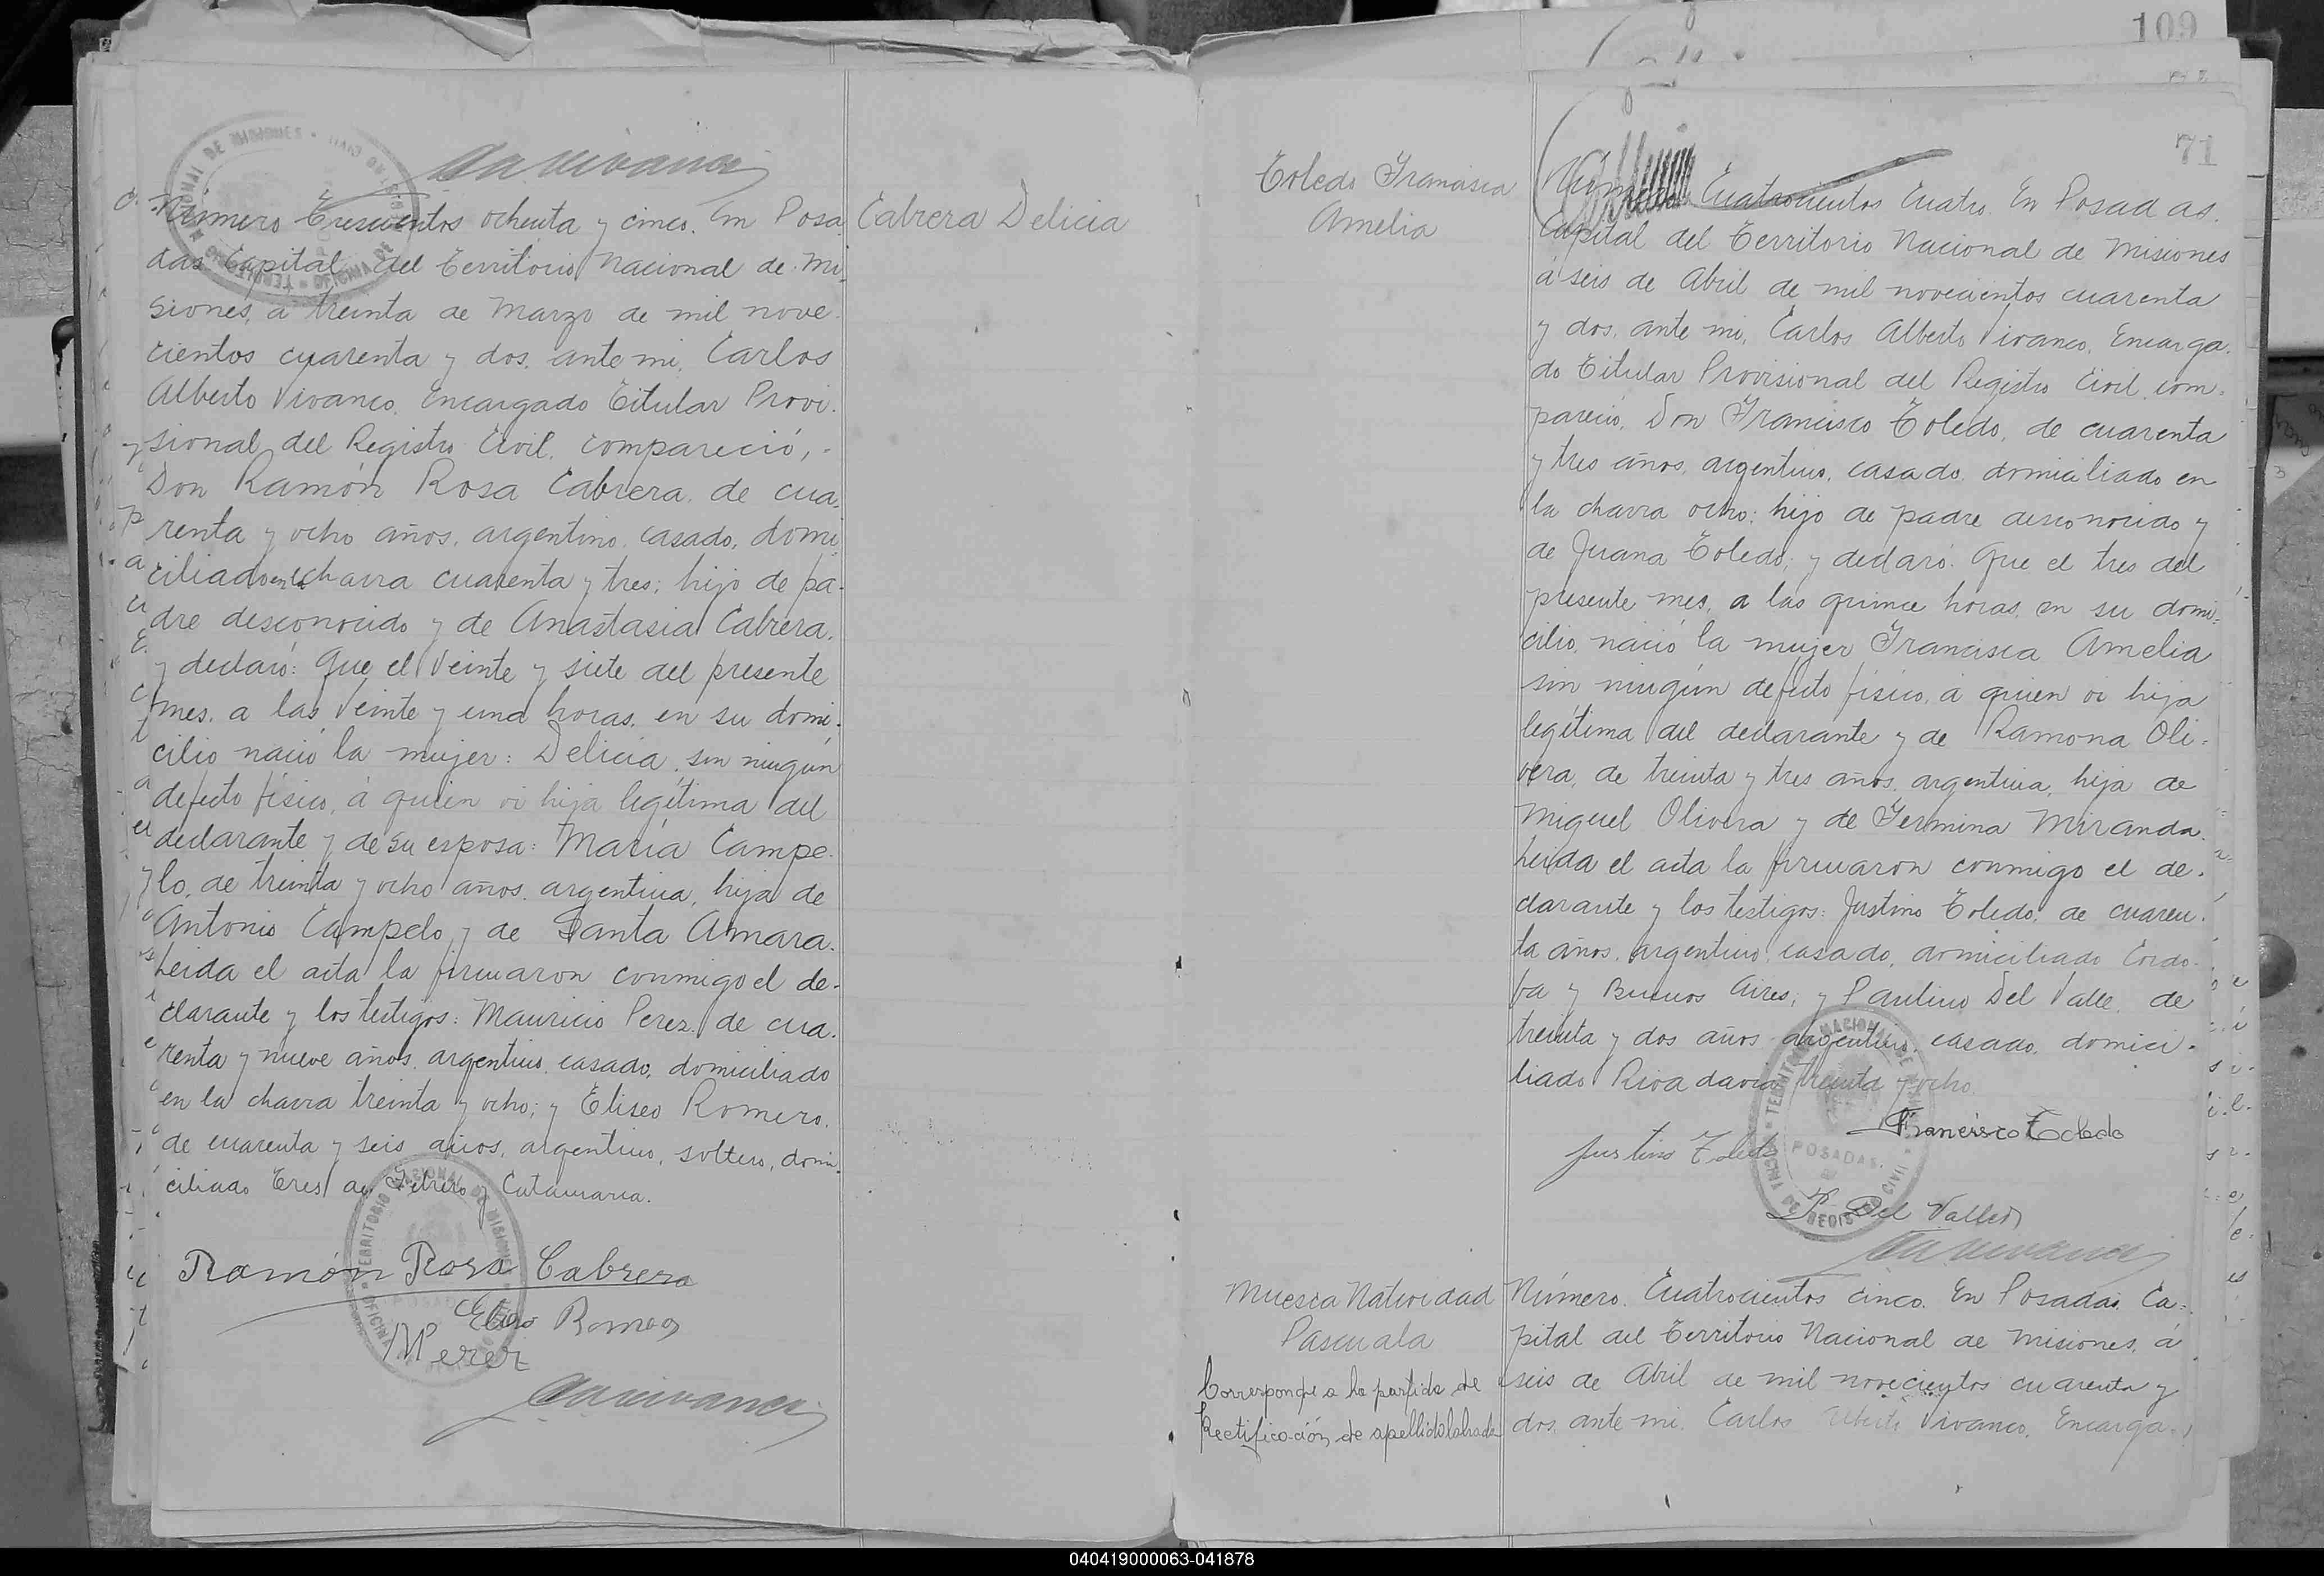 109
Número Trescientos ochenta y cinco. En Posa
das Capital del Territorio Nacional de Mi
siones, a treinta de Marzo de mil nove
cientos cuarenta y dos, ante mi, Carlos
Alberto Vivanco, Encargado Titular Provi
sional del Registro Civil, compareció,
Don Ramón Rosa Cabrera, de cua
renta y ocho años, argentino, casado, domi
ciliado en la chacra cuarenta y tres; hijo de pa
dre desconocido y de Anastasia Cabrera,
y declaró: Que el veinte y siete del presente
mes, a las veinte y una horas, en su domi
cilio nació la mujer: Delicia, sin ningún
defecto físico, á quien vi hija legítima del
declarante y de su esposa: María Campe
lo, de treinta y ocho años, argentina, hija de
Antonio Campelo y de Santa Amara.
Leida el acta la firmaron conmigo el de-
clarante y los testigos: Mauricio Perez, de cua.
renta y nueve años, argentino, casado, domiciliado
en la chacra treinta y ocho; y Eliseo Romero,
de cuarenta y seis años, argentino, soltero, domi
ciliado Tres de Febrero y Catamarca.
Ramón Rosa Cabrera
Eliseo Romero
M Perez
Cabrera Delicia
71
Toledo Francisca
Amelia
Número Cuatrocientos Cuatro. En Posadas,
Capital del Territorio Nacional de Misiones
á seis de Abril de mil novecientos cuarenta
y dos, ante mi, Carlos Alberto Vivanco, Encarga.
do Titular Provisional del Registro Civil, com-
pareció, Don Francisco Toledo, de cuarenta
y tres años, argentino, casado, domiciliado en
la chacra ocho; hijo de padre desconocido y
de Juana Toledo; y declaró: Que el tres del
presente mes, a las quince horas, en su domi-
cilio, nació la mujer Francisca Amelia
sin ningún defecto físico, á quien vi hija
legítima del declarante y de Ramona Oli-
vera, de treinta y tres años, argentina, hija de
Miguel Olivera y de Fermina Miranda.
Leida el acta la firmaron conmigo el de-
clarante y los testigos: Justino Toledo, de cuaren-
ta años, argentino, casado, domiciliado Cordo-
ba y Buenos Aires; y Paulino Del Valle, de
treinta y dos años argentino, casado, domici-
liado Rivadavia treinta y ocho.
Francisco Toledo
Justino Toledo
P. Del Valle
Muesca Natividad
Pascuala
Corresponde a la partida de
Rectificación de apellido labrada
Número. Cuatrocientos cinco. En Posadas, Ca-
pital del Territorio Nacional de Misiones, á
seis de Abril de mil novecientos cuarenta y
dos, ante mi, Carlos Alberto Vivanco, Encarga-
040419000063-041878